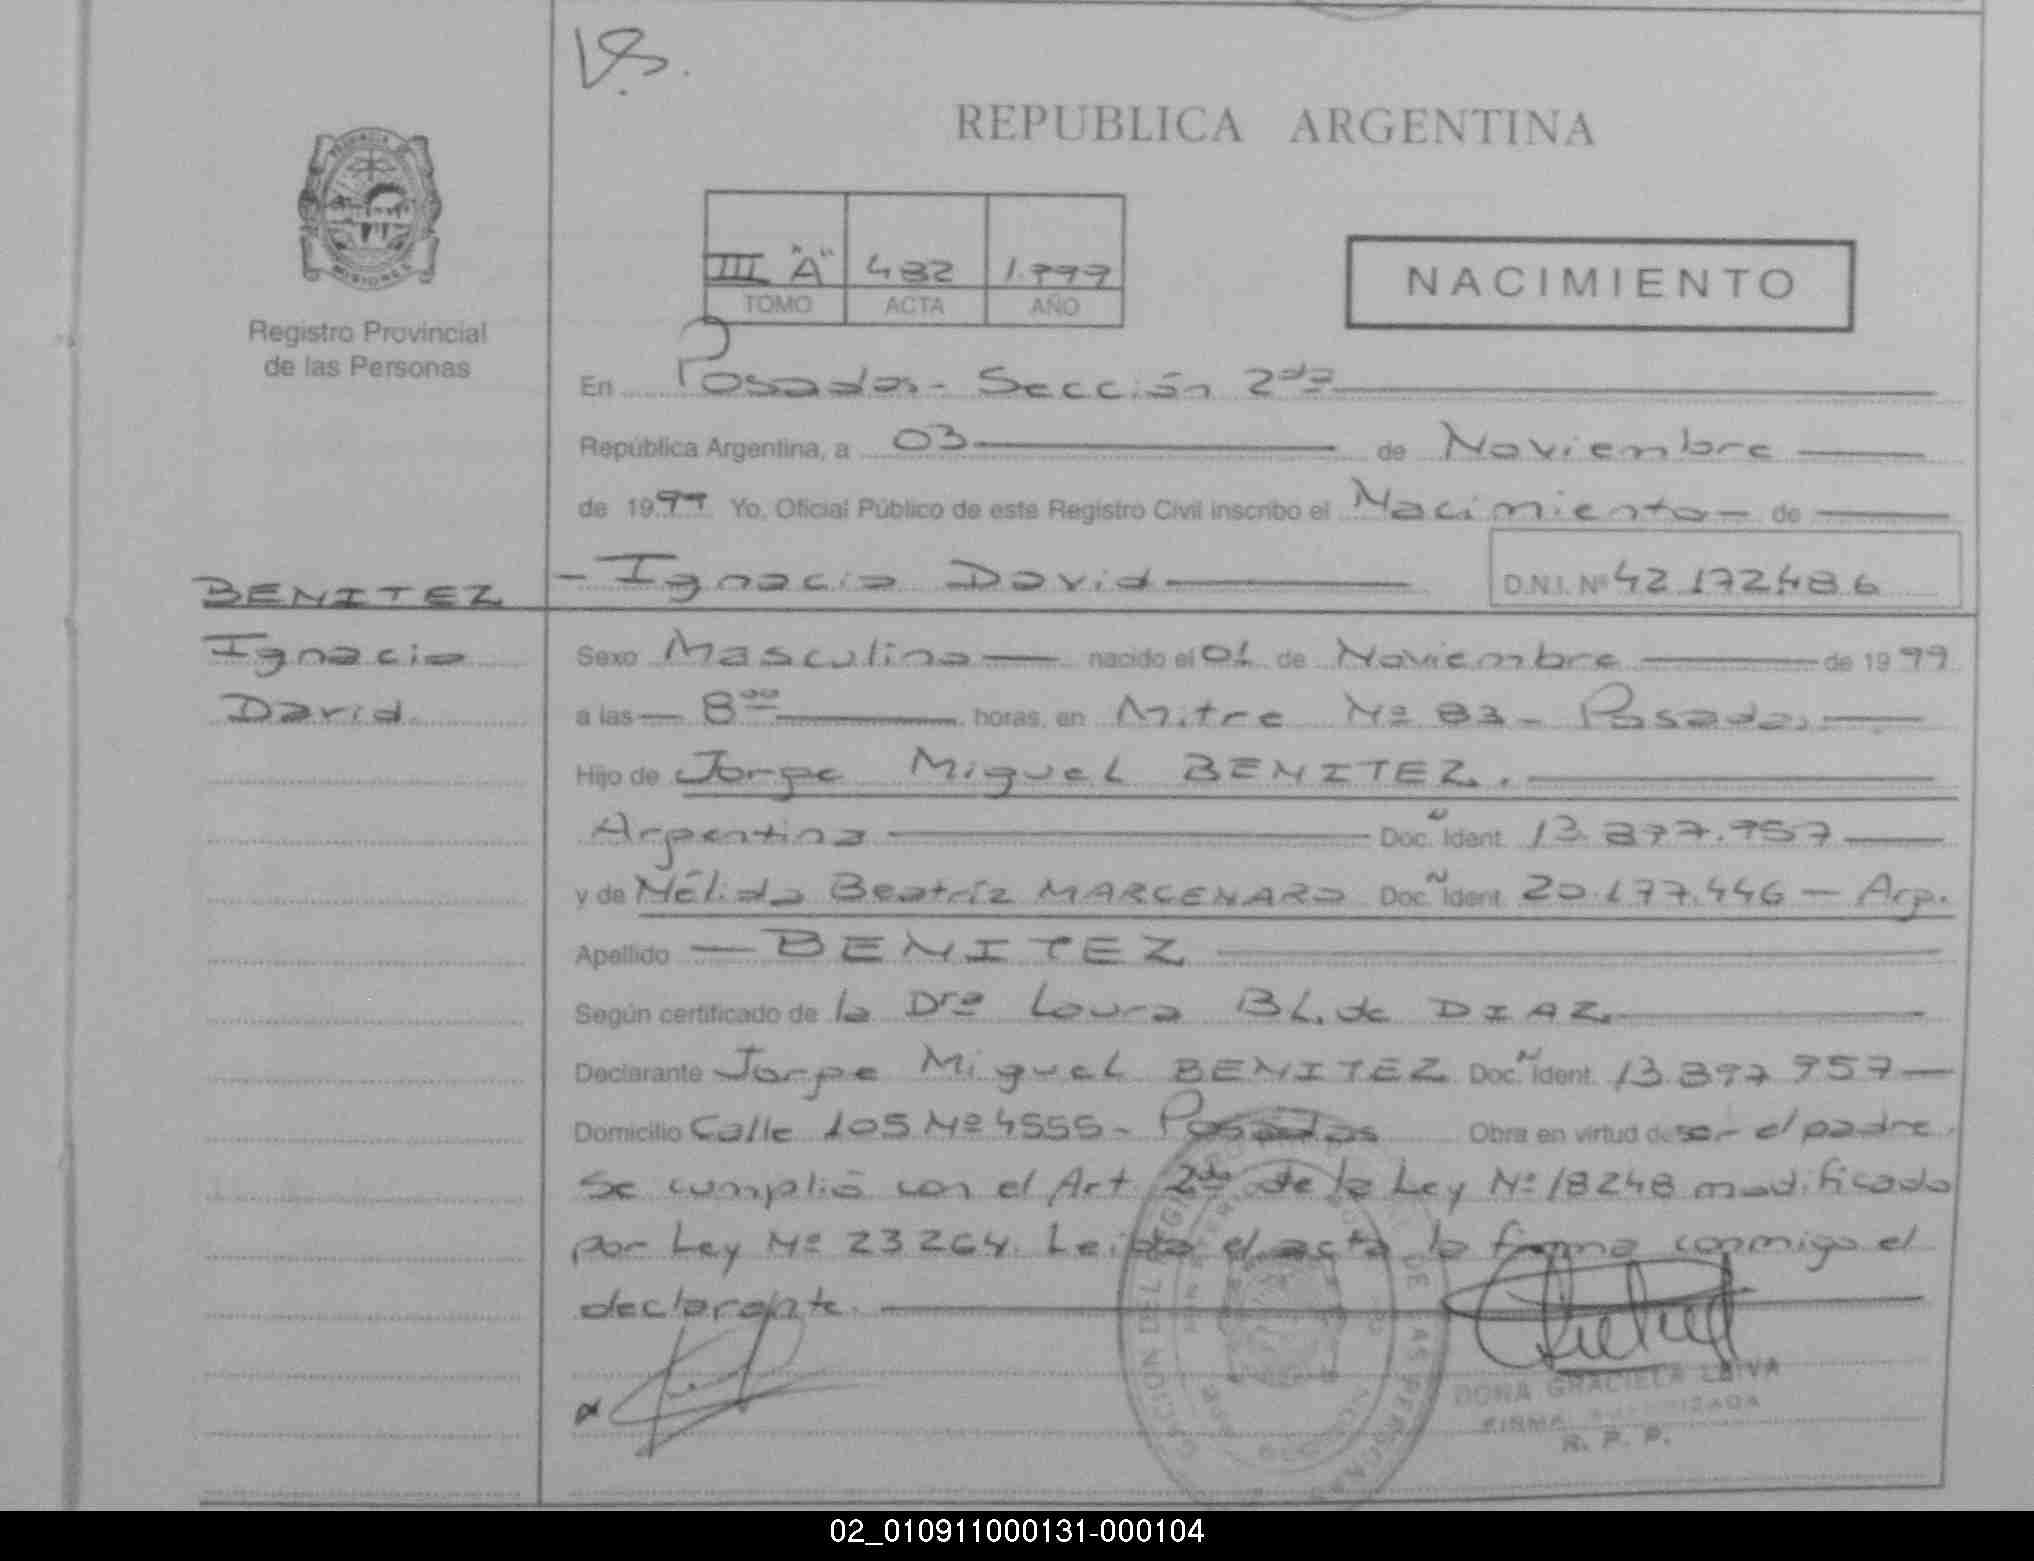 V.S.
REPUBLICA ARGENTINA
PROVINCIA
MISIONES
III "A" 482 1.999
TOMO ACTA AÑO
NACIMIENTO
Registro Provincial
de las Personas
En Posadas - Sección 2da
República Argentina, a 03 de Noviembre
de 1999 Yo, Oficial Público de este Registro Civil inscribo el Nacimiento - de
- Ignacio David D.N.I. Nº 42.172.486
BENITEZ
Ignacio
David
Sexo Masculino nacido el 01 de Noviembre de 1999
a las 8 00 horas, en Mitre Nº 83 - Posadas
Hijo de Jorge Miguel BENITEZ.
Argentina Doc. Ident. 13.897.957
y de Nélida Beatríz MARCENARO Doc. Ident. 20.177.446 - Arg.
Apellido BENITEZ
Según certificado de la Dra Laura BL. de DIAZ.
Declarante Jorge Miguel BENITEZ Doc. Ident. 13.897.957
Domicilio Calle 105 Nº 4555 - Posadas Obra en virtud de ser el padre.
Se cumplió con el Art. 2do de la Ley Nº 18248 modificado
por Ley Nº 23264. Leída el acta la firma conmigo el
declarante.
DOÑA GRACIELA LEIVA
FIRMA AUTORIZADA
R. P. P.
02_010911000131-000104